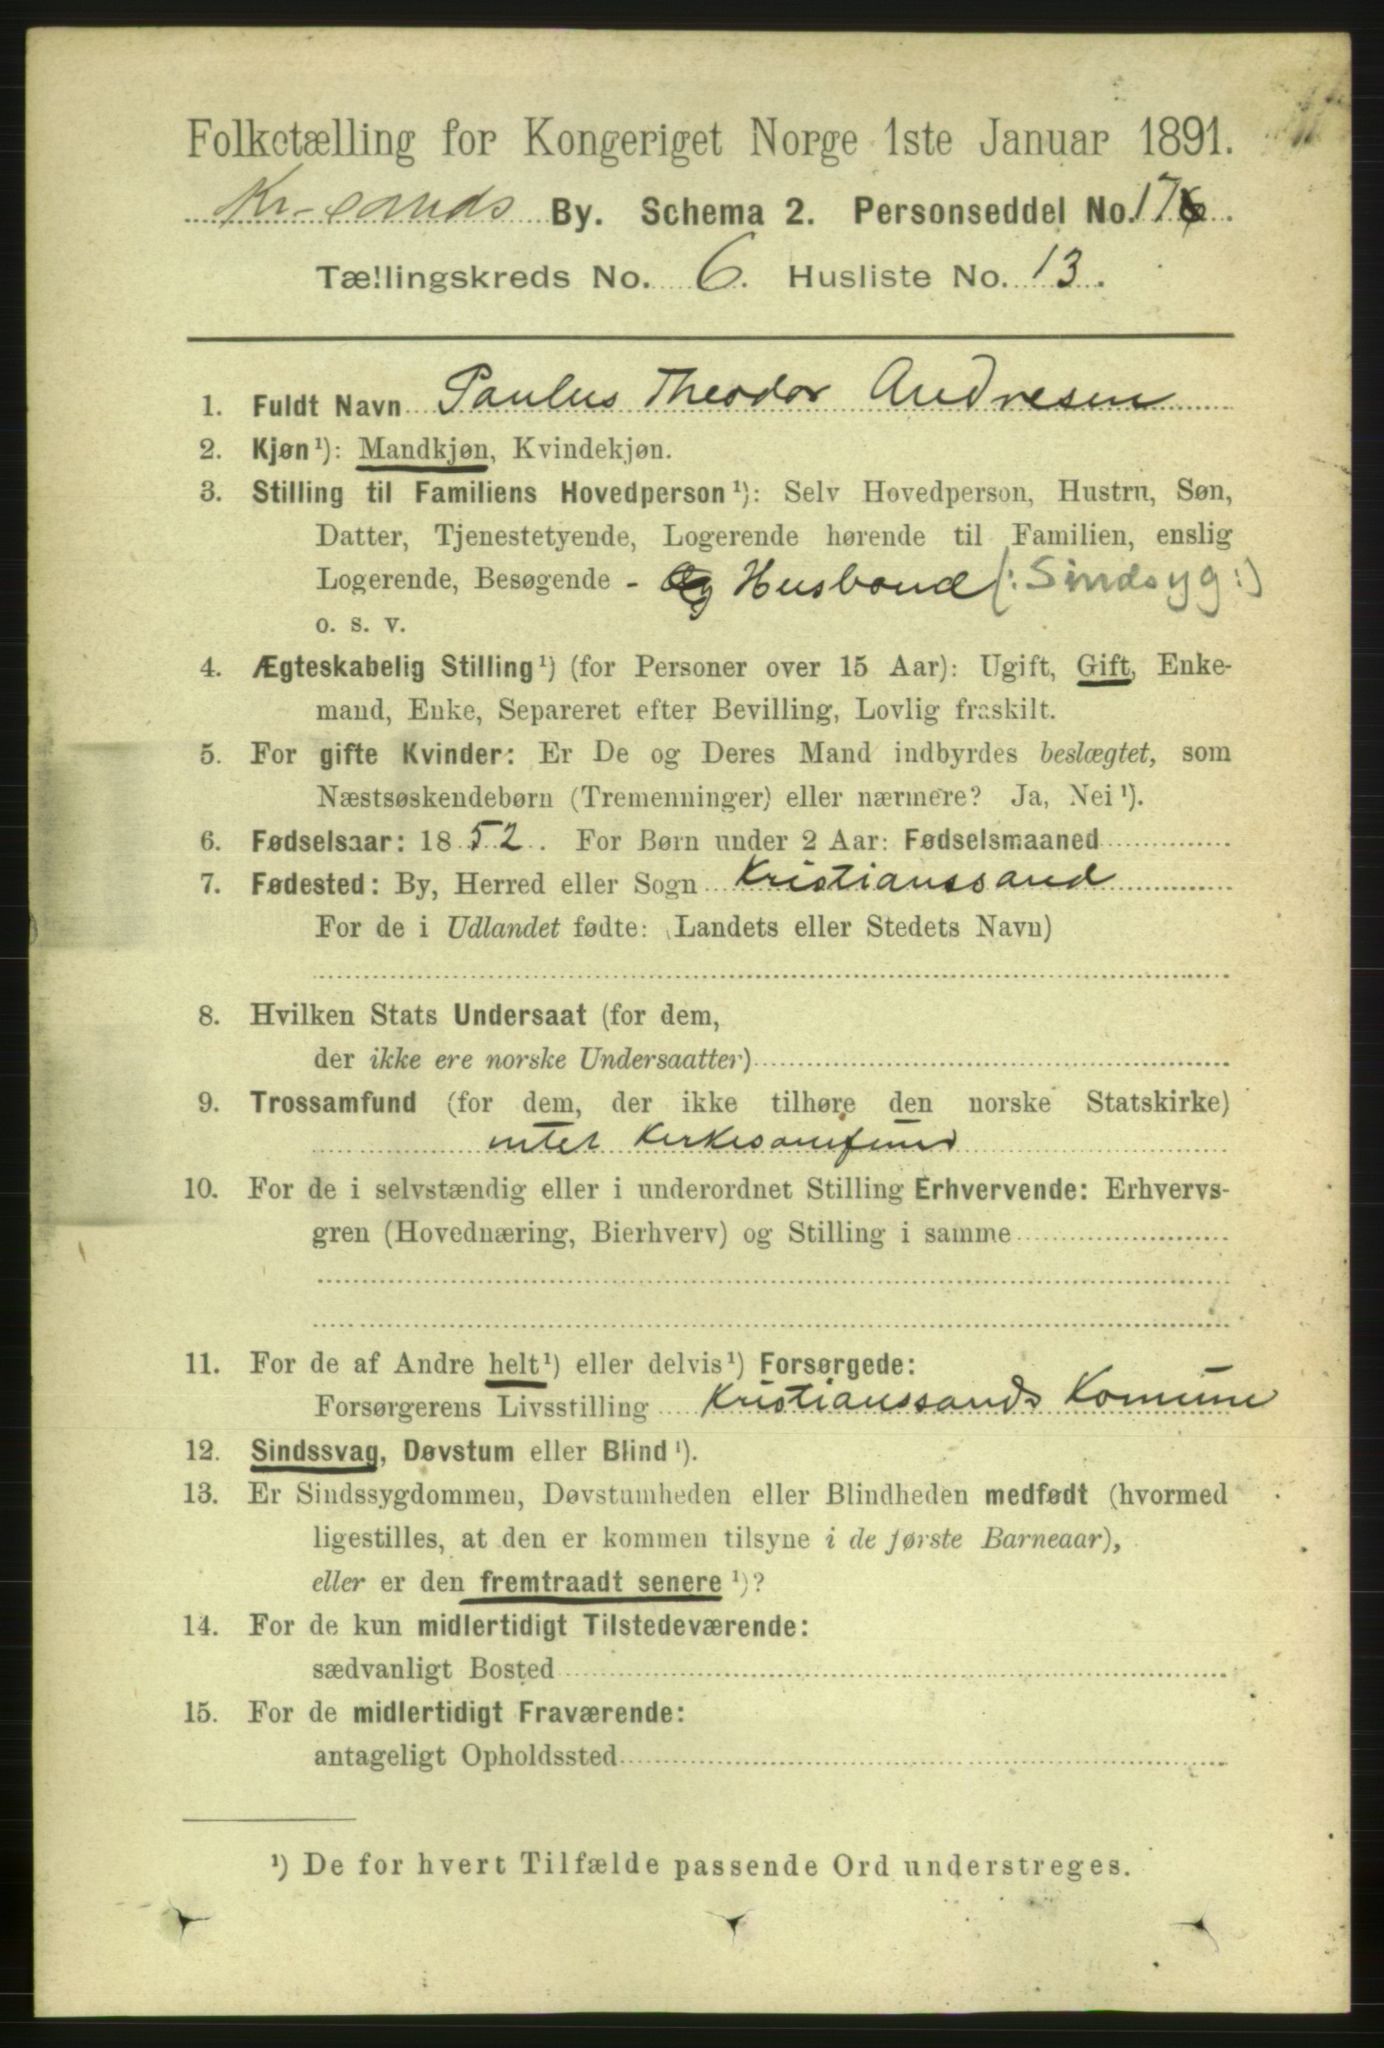 Folketælling for Kongeriget Norge 1ste Januar 1891.
Kr-sands By. Schema 2. Personseddel No. 176.
Tællingskreds No. 6. Husliste No. 13.
1. Fuldt Navn Paulus Theodor Andresen
2. Kjøn¹): Mandkjøn, Kvindekjøn.
3. Stilling til Familiens Hovedperson¹): Selv Hovedperson, Hustru, Søn,
Datter, Tjenestetyende, Logerende hørende til Familien, enslig
Logerende, Besøgende - Husbond (: Sindsyg :)
o. s. v.
4. Ægteskabelig Stilling¹) (for Personer over 15 Aar): Ugift, Gift, Enke-
mand, Enke, Separeret efter Bevilling, Lovlig fraskilt.
5. For gifte Kvinder: Er De og Deres Mand indbyrdes beslægtet, som
Næstsøskendebørn (Tremenninger) eller nærmere? Ja, Nei¹).
6. Fødselsaar: 1852. For Børn under 2 Aar: Fødselsmaaned
7. Fødested: By, Herred eller Sogn Kristianssand
For de i Udlandet fødte: (Landets eller Stedets Navn)
8. Hvilken Stats Undersaat (for dem,
der ikke ere norske Undersaatter)
9. Trossamfund (for dem, der ikke tilhøre den norske Statskirke)
intet Kirkesamfund
10. For de i selvstændig eller i underordnet Stilling Erhvervende: Erhvervs-
gren (Hovednæring, Bierhverv) og Stilling i samme
11. For de af Andre helt¹) eller delvis¹) Forsørgede:
Forsørgerens Livsstilling Kristianssands Komune
12. Sindssvag, Døvstum eller Blind¹).
13. Er Sindssygdommen, Døvstumheden eller Blindheden medfødt (hvormed
ligestilles, at den er kommen tilsyne i de første Barneaar),
eller er den fremtraadt senere¹)?
14. For de kun midlertidigt Tilstedeværende:
sædvanligt Bosted
15. For de midlertidigt Fraværende:
antageligt Opholdssted
¹) De for hvert Tilfælde passende Ord understreges.